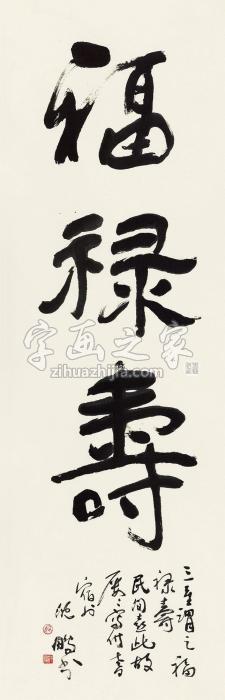 福
禄
寿
字画之家
zihuazhijia.com
三星谓之福
禄寿
民间喜此故
屡之写付书
宿州
沈鹏书